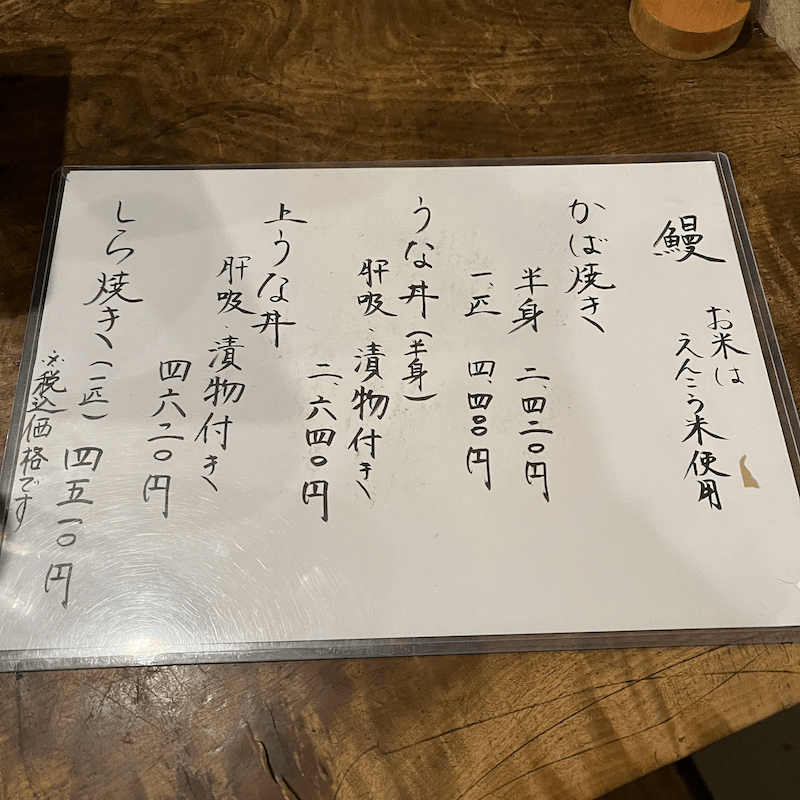 鰻
お米は
えんこう米使用
かば焼き
半身 二、四二〇円
一、匹 四、四〇〇円
うな丼(半身)
肝吸、漬物付き
二、六四〇円
上うな丼
肝吸、漬物付き
四六二〇円
しら焼き(一匹) 四五一〇円
※税込価格です